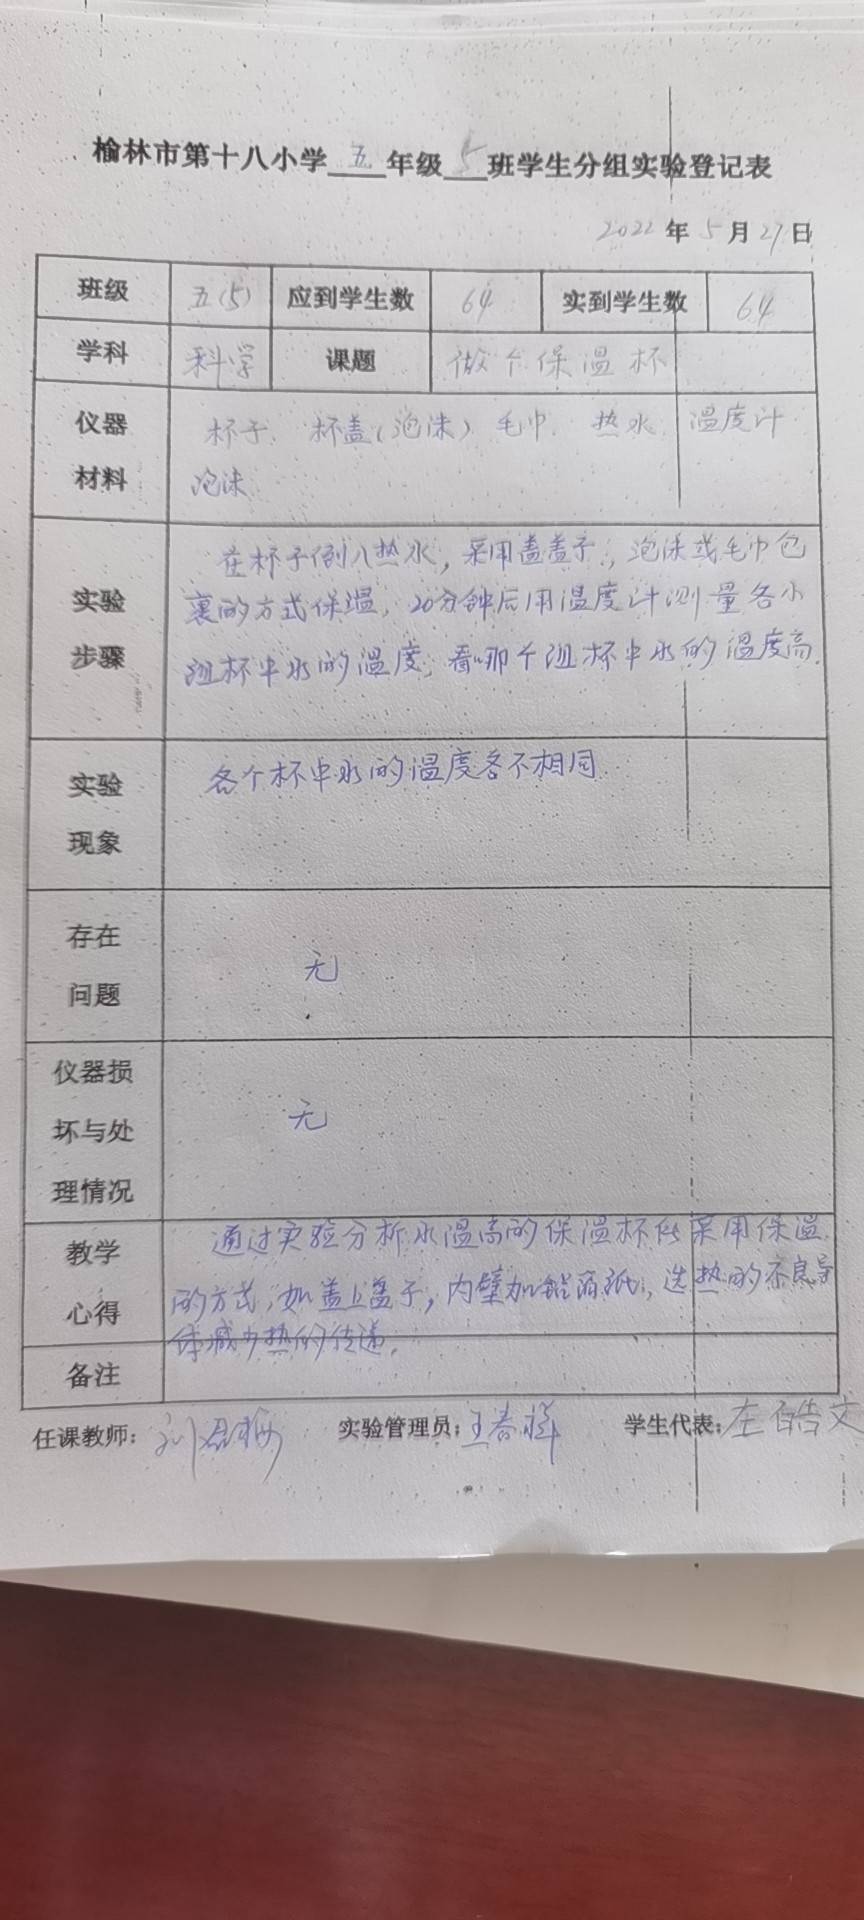 榆林市第十八小学五年级5班学生分组实验登记表
2022年5月27日
班级 五(5) 应到学生数 64 实到学生数 64
学科 科学 课题 做个保温杯
仪器 杯子、杯盖(泡沫) 毛巾、热水、温度计
材料 泡沫
在杯子倒入热水,采用盖盖子、泡沫或毛巾包
实验 裹的方式保温,20分钟后用温度计测量各小
步骤 组杯中水的温度,看哪个组杯中水的温度高.
实验 各个杯中水的温度各不相同
现象
存在
无
问题
仪器损
坏与处 无
理情况
教学 通过实验分析水温高的保温杯 采用保温
的方式,如盖上盖子,内壁加铝箔纸,选热的不良导
心得
体减少热的传递.
备注
任课教师: 刘 实验管理员: 王春 学生代表: 左皓文